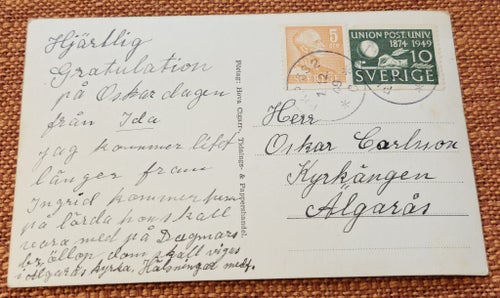 Hjärtlig
Gratulation
på Oskardagen
från Ida
jag kommer litet
länger fram
Ingrid kommer hem
på lördag hon skall
vara med på Dagmars
bröllop dom skall viges
i Älgarås kyrka, Hälsningar
Förlag: Hova Cigarr-, Tidnings- & Pappershandel.
5
ÖRE
UNION POST. UNIV.
1874 1949
10
SVERIGE
Herr
Oskar Carlsson
Kyrkängen
Älgarås